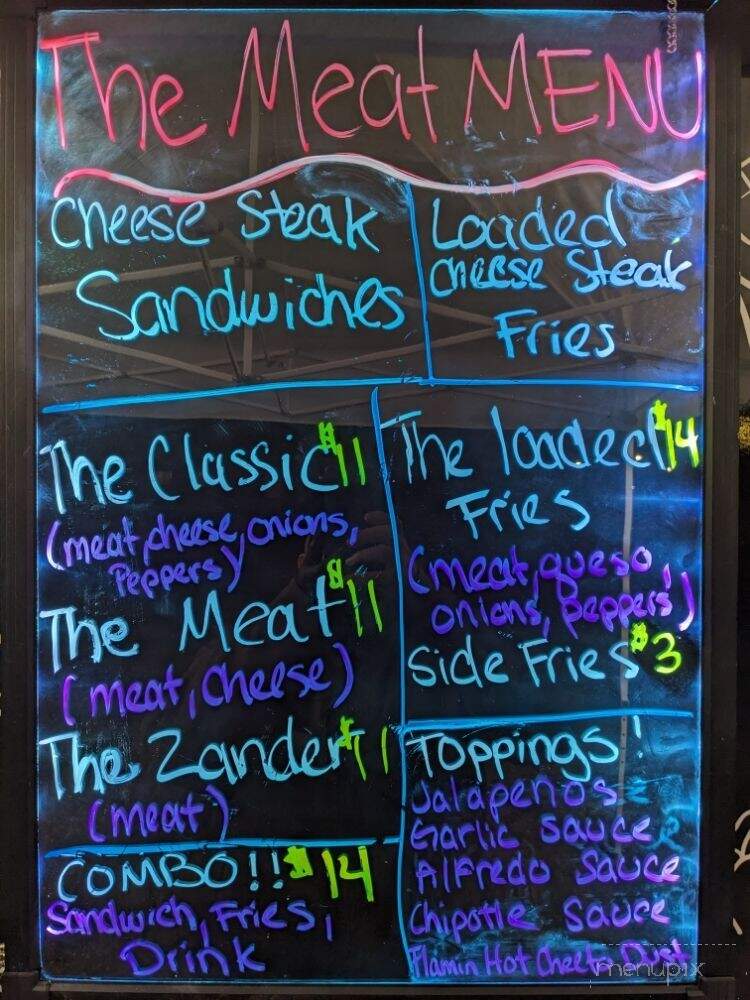 The Meat MENU
Cheese Steak
Sandwiches
Loaded
Cheese Steak
Fries
The Classic $11
(meat, cheese, onions,
Peppers)
The Meat $11
(meat, cheese)
The Zander $11
(meat)
COMBO!! $14
Sandwich, Fries,
Drink
The loaded $14
Fries
(meat, queso,
onions, peppers)
Side Fries $3
Toppings!
Jalapeños
Garlic Sauce
Alfredo Sauce
Chipotle Sauce
Flamin Hot Cheeto Dust
menupix